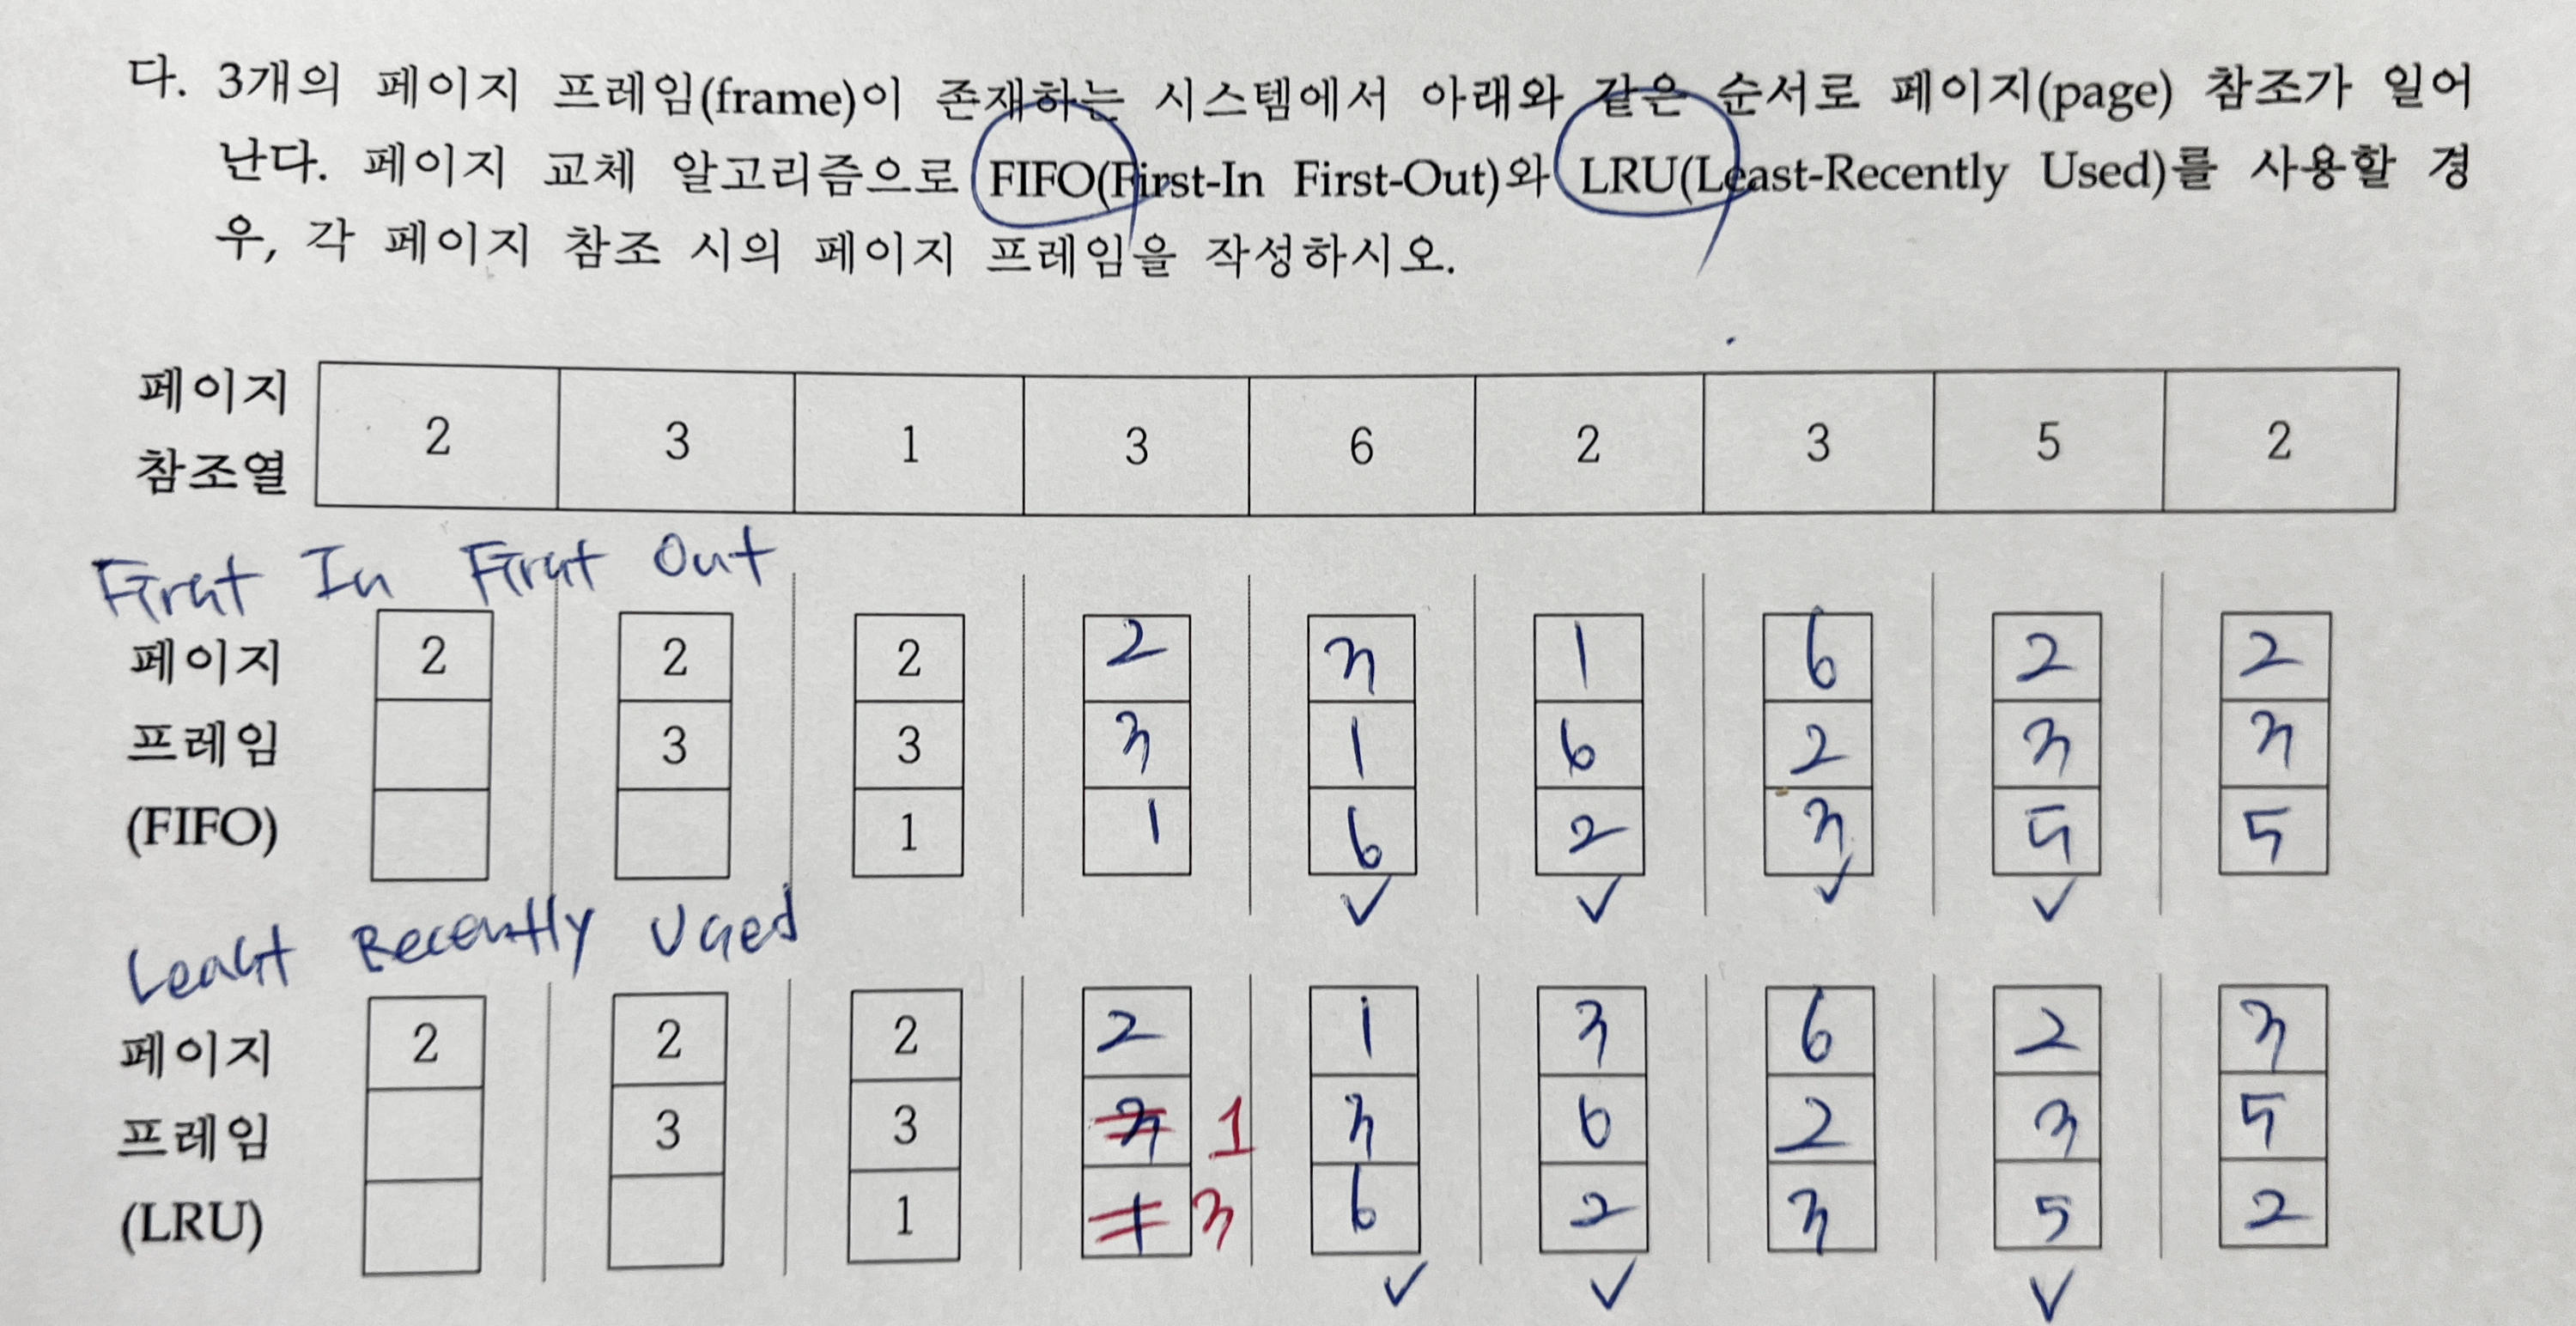 다. 3개의 페이지 프레임(frame)이 존재하는 시스템에서 아래와 같은 순서로 페이지(page) 참조가 일어
난다. 페이지 교체 알고리즘으로 FIFO(First-In First-Out)와 LRU(Least-Recently Used)를 사용할 경
우, 각 페이지 참조 시의 페이지 프레임을 작성하시오.
페이지
참조열
2 3 1 3 6 2 3 5 2
First In First Out
페이지 2 2 2 2 3 1 6 2 2
프레임 3 3 3 1 6 2 3 3
(FIFO) 1 1 6 2 3 5 5
Least Recently Used
페이지 2 2 2 2 1 3 6 2 3
프레임 3 3 3 1 3 6 2 3 5
(LRU) 1 1 3 6 2 3 5 2